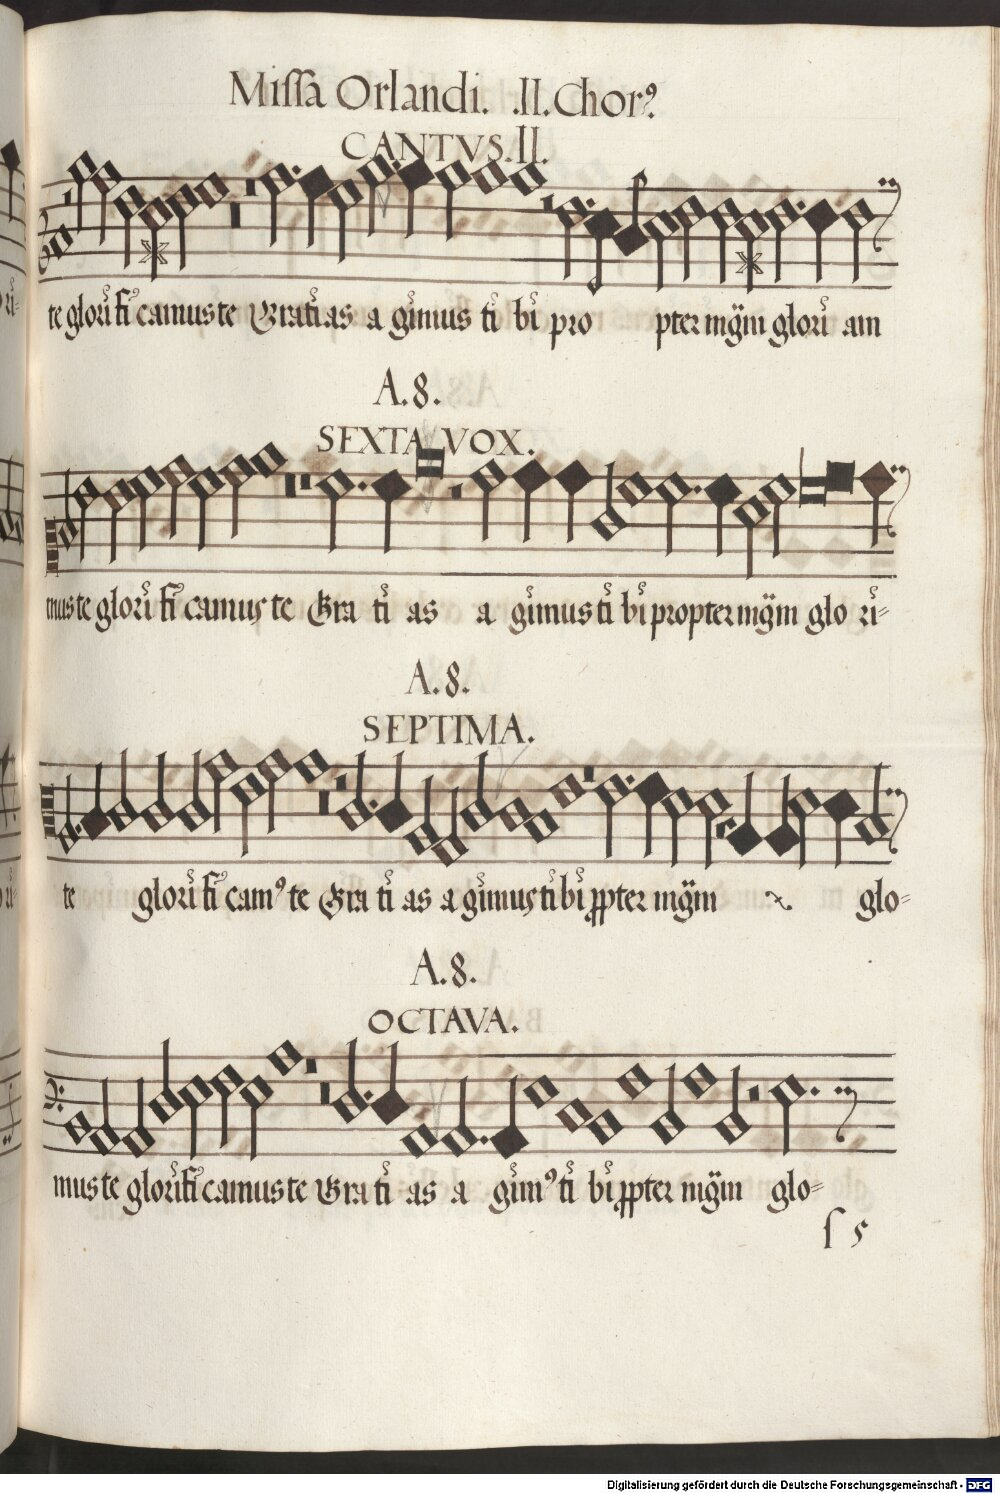 Missa Orlandi. .II. Chorꝰ.
CANTVS.II.
te glorifi camus te Gratias a gimus ti bi pro pter mg̃m glori am
A.8.
SEXTA VOX.
mus te glorifi camus te Gra ti as a gimus ti bi propter mg̃m glo ri=
A.8.
SEPTIMA.
te glorifi camꝰ te Gra ti as a gimus ti bi ꝓpter mg̃m glo=
A.8.
OCTAVA.
mus te glorifi camus te Gra ti as a gimꝰ ti bi ꝓpter mg̃m glo=
ſ 5
Digitalisierung gefördert durch die Deutsche Forschungsgemeinschaft - DFG